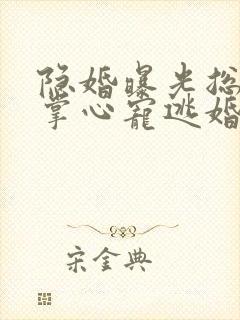 隐婚曝光总
掌心宠逃婚
宋金典